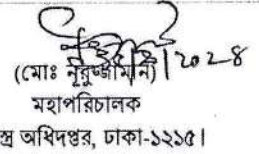 ২০২৪
(মোঃ নূরুজ্জামান)
মহাপরিচালক
স্ত্র অধিদপ্তর, ঢাকা-১২১৫।